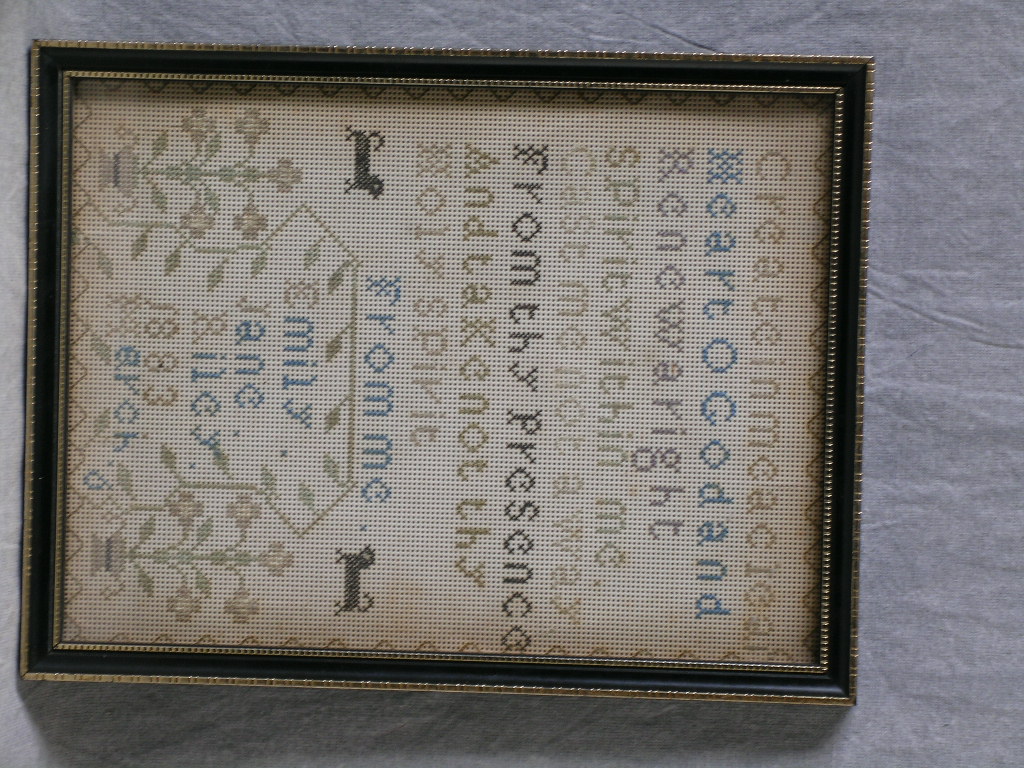 Create in me a clean
Heart O God and
Renew a right
Spirit within me.
Cast me not away
From thy presence
And take not thy
Holy Spirit
From me.
Emily
Jane
Riley.
1883
March.